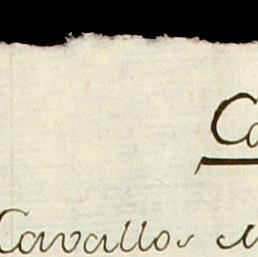 Ca
Cavallos M